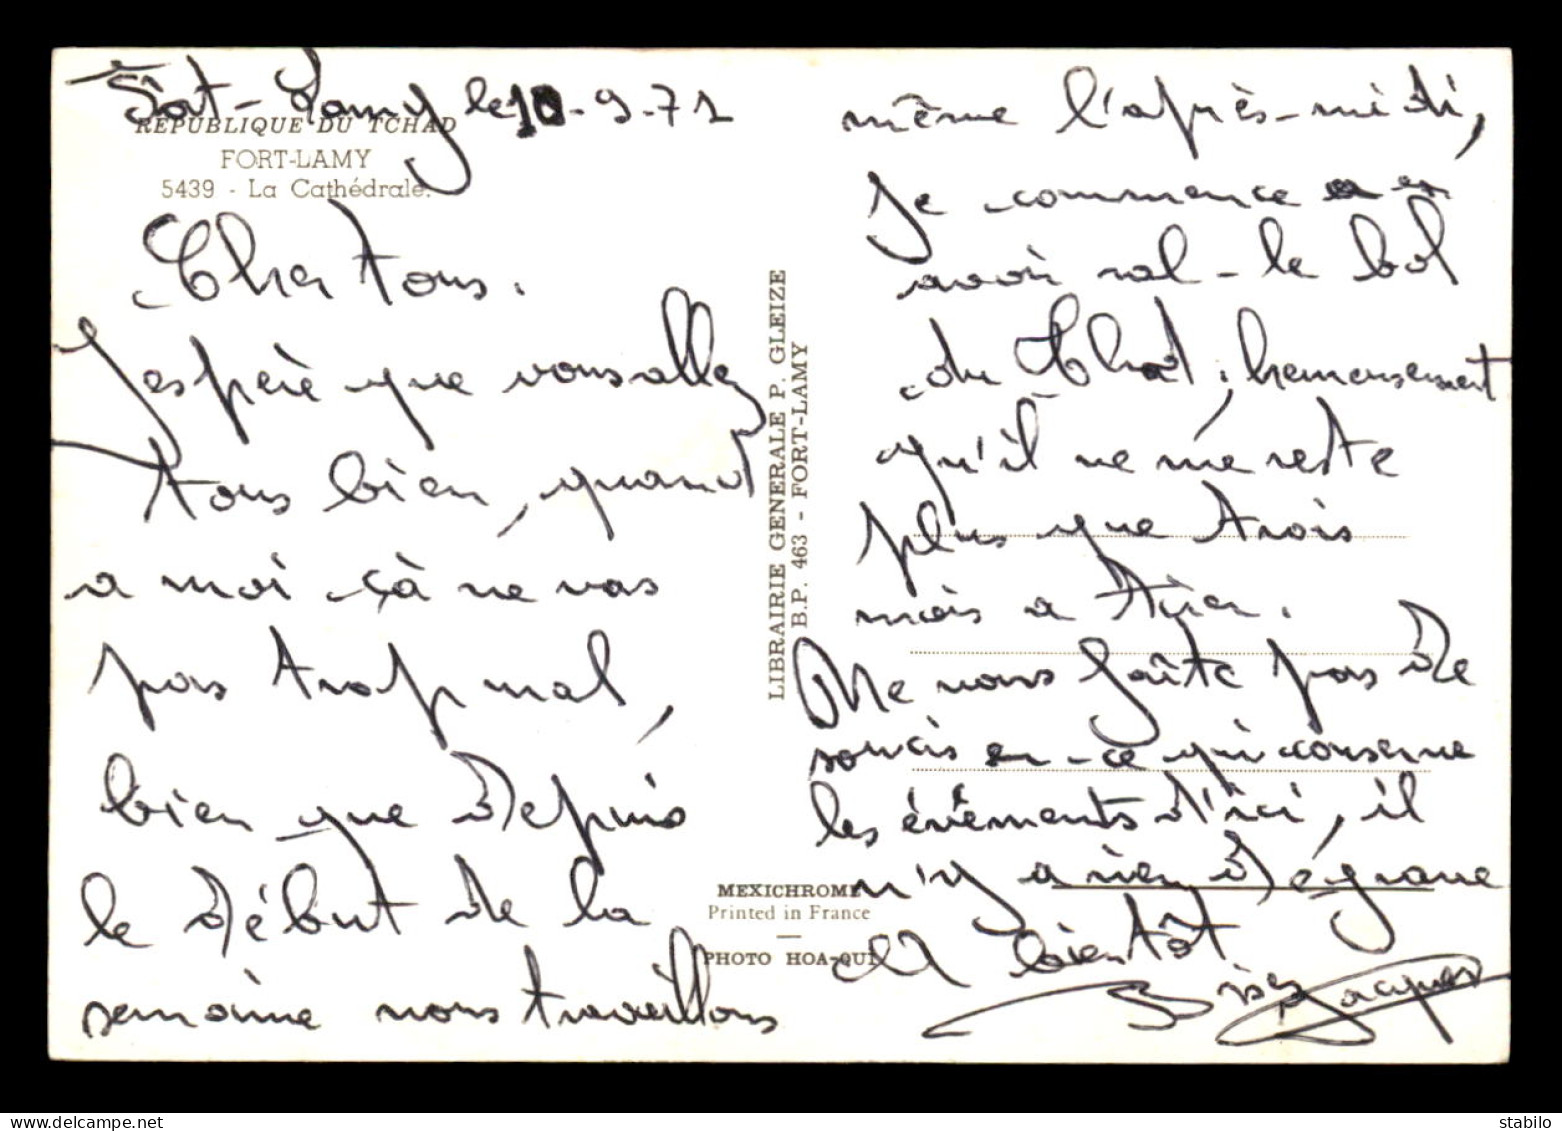 Fort-Lamy le 10-9-71
REPUBLIQUE DU TCHAD
FORT-LAMY
5439 - La Cathédrale.
Cher tous.
J'espère que vous allez
tous bien, quand
a moi çà ne vas
pas trop mal,
bien que depuis
le début de la
semaine nous travaillons
LIBRAIRIE GENERALE P. GLEIZE
B.P. 463 - FORT-LAMY
MEXICHROME
Printed in France
PHOTO HOA-QUI
même l'après-midi,
Je commence
avoir ral-le bol
du Tchad, heureusement
qu'il ne me reste
plus que trois
mois a tirer.
Ne vous faîte pas de
soucis en-ce qui conserne
les événements d'ici, il
n'y a rien de grave
A bientôt
Bises Jacques
www.delcampe.net
stabilo